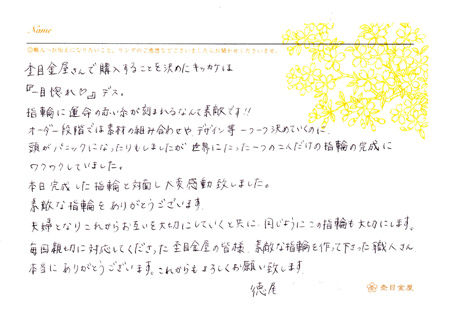 Name
◎職人へお伝えになりたいこと、リングのご感想などございましたらお聞かせくださいませ。
杢目金屋さんで購入することを決めたキッカケは
『一目惚れ♡』デス。
指輪に運命の赤い糸が刻まれるなんて素敵です!!
オーダー段階では素材の組み合わせや、デザイン等一つ一つ決めていくのに
頭がパニックになったりもしましたが世界にたった一つの二人だけの指輪の完成に
ワクワクしていました。
本日完成した指輪と対面し大変感動致しました。
素敵な指輪をありがとうございます。
夫婦となりこれからお互いを大切にしていくと共に、同じようにこの指輪も大切にします。
毎回親切に対応してくださった杢目金屋の皆様、素敵な指輪を作って下さった職人さん
本当にありがとうございます。これからもよろしくお願い致します。
徳屋
杢目金屋